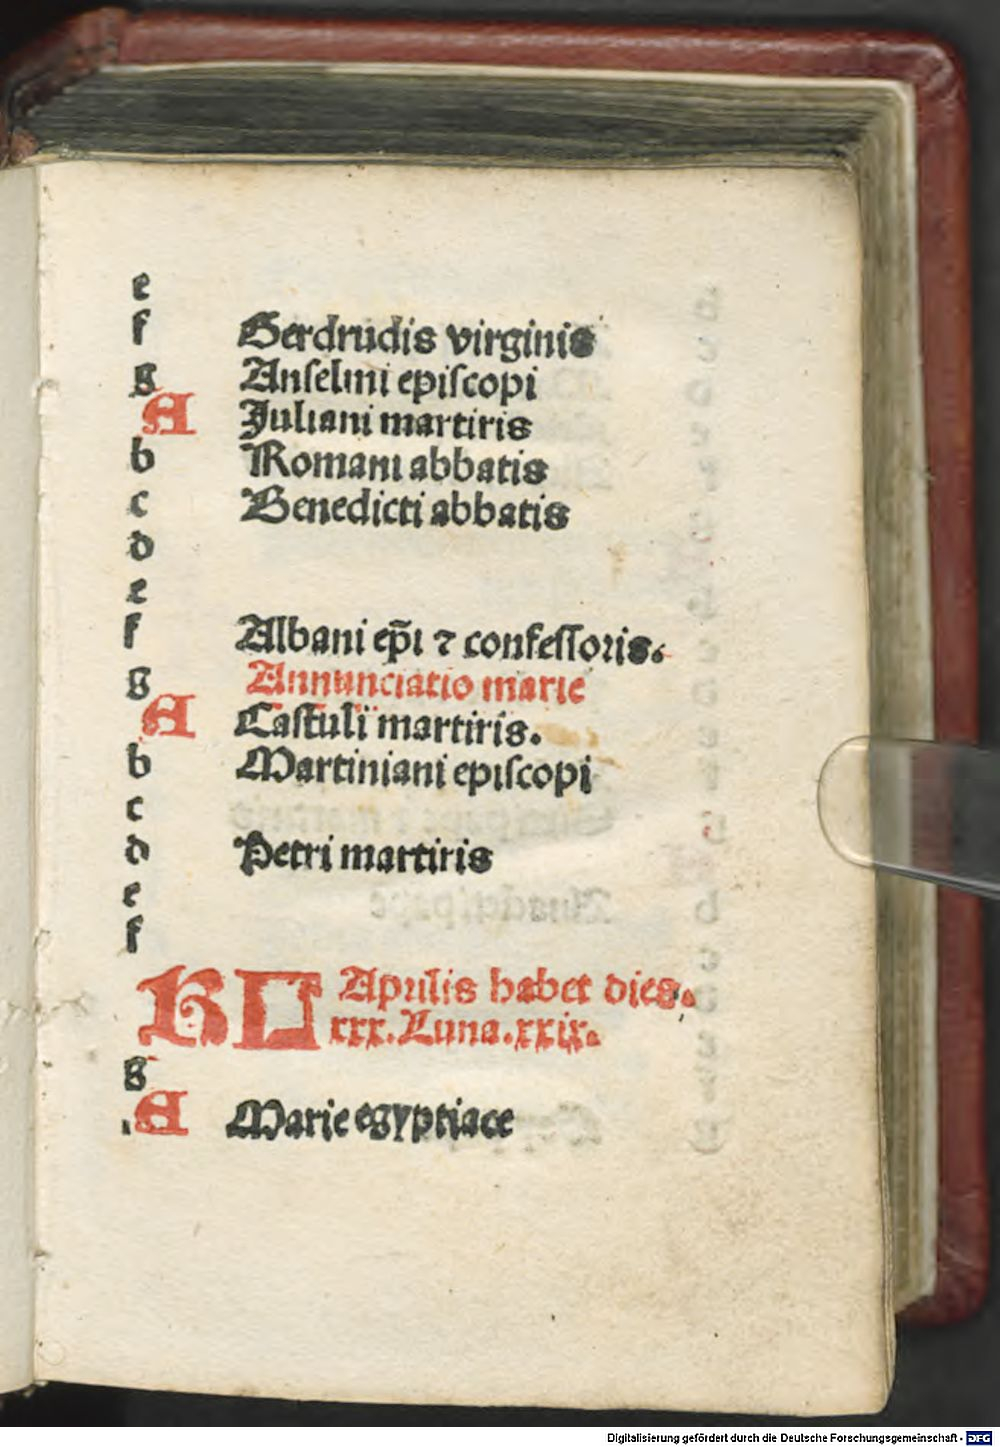 e
f Gerdrudis virginis
g Anselmi episcopi
A Juliani martiris
b Romani abbatis
c Benedicti abbatis
d
e
f Albani ep̃i ⁊ confessoris.
g Annunciatio marie
A Castuli martiris.
b Martiniani episcopi
c
d Petri martiris
e
f
KL Apulis habet dies.
xxx. Luna. xxix.
g
A Marie egyptiace
Digitalisierung gefördert durch die Deutsche Forschungsgemeinschaft - DFG